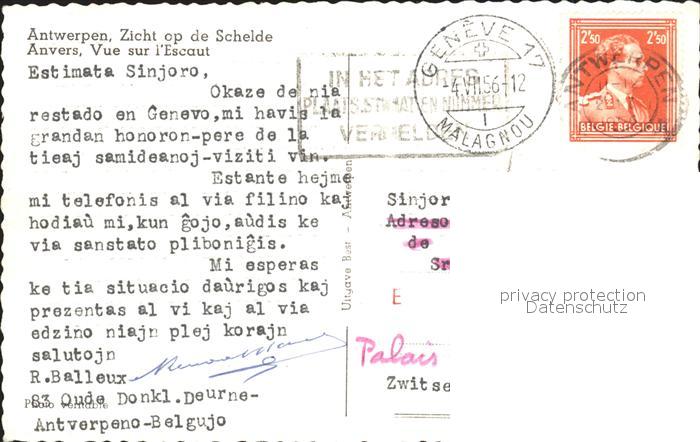 Antwerpen, Zicht op de Schelde
Anvers, Vue sur l'Escaut
Estimata Sinjoro,
Okaze de nia
restado en Ĝenevo, mi havis la
grandan honoron-pere de la
tieaj samideanoj-viziti vin.
Estante hejme
mi telefonis al via filino kaj
hodiaŭ mi, kun ĝojo, aŭdis ke
via sanstato pliboniĝis.
Mi esperas
ke tia situacio daŭrigos kaj
prezentas al vi kaj al via
edzino niajn plej korajn
salutojn
R. Balleux
83 Oude Donkl. Deurne-
Antverpeno-Belgujo
Uitgave Best - Antwerpen
IN HET ADRES
PLAATS, STRAAT EN NUMMER
VERMELDEN
GENÈVE 17
4.VII.56-12
1
MALAGNOU
2F50 2F50
BELGIE-BELGIQUE
ANTWERPEN
Sinjor
Adreso
de
Sr
E
Palais
Zwitse
privacy protection
Datenschutz